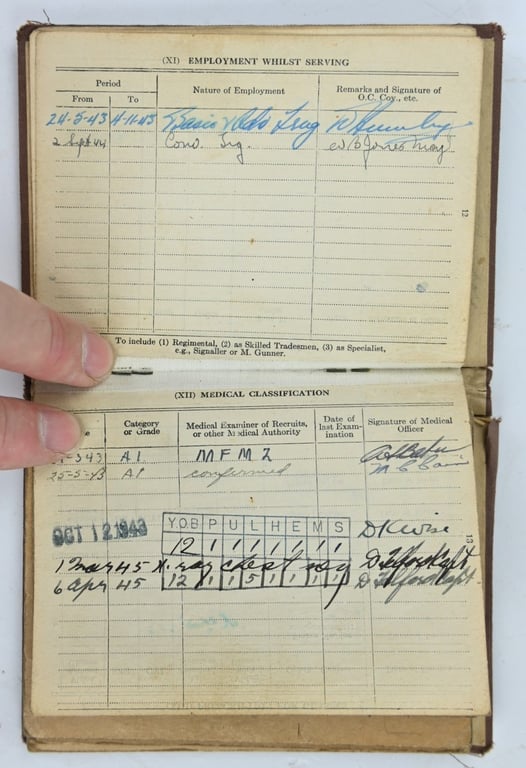 (XI) EMPLOYMENT WHILST SERVING
Period
From To
Nature of Employment
Remarks and Signature of
O.C. Coy., etc.
24-5-43 4-11-43 Basic & Adv Trng
2 Sept 44 Conv. Trg. Jones Maj
12
To include (1) Regimental, (2) as Skilled Tradesmen, (3) as Specialist,
e.g., Signaller or M. Gunner.
(XII) MEDICAL CLASSIFICATION
Category
or Grade
Medical Examiner of Recruits,
or other Medical Authority
Date of
last Exam-
ination
Signature of Medical
Officer
A1 M F M Z
25-5-43 A1 confirmed
OCT 12 1943
Y.O.B P U L H E M S
12 1 1 1 1 1 1 1
D K Wise
1 Mar 45 X. ray chest
6 Apr 45 12 1 1 5 1 1 1 1
13